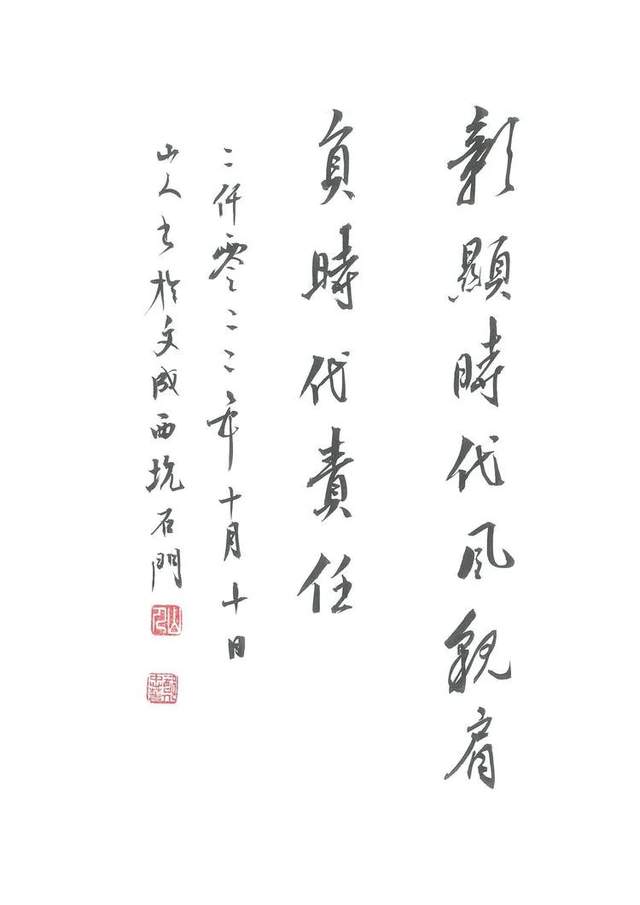 彰顯時代風貌肩
負時代責任
二仟零二二年十月十日
山人书於文成西坑石門
山人